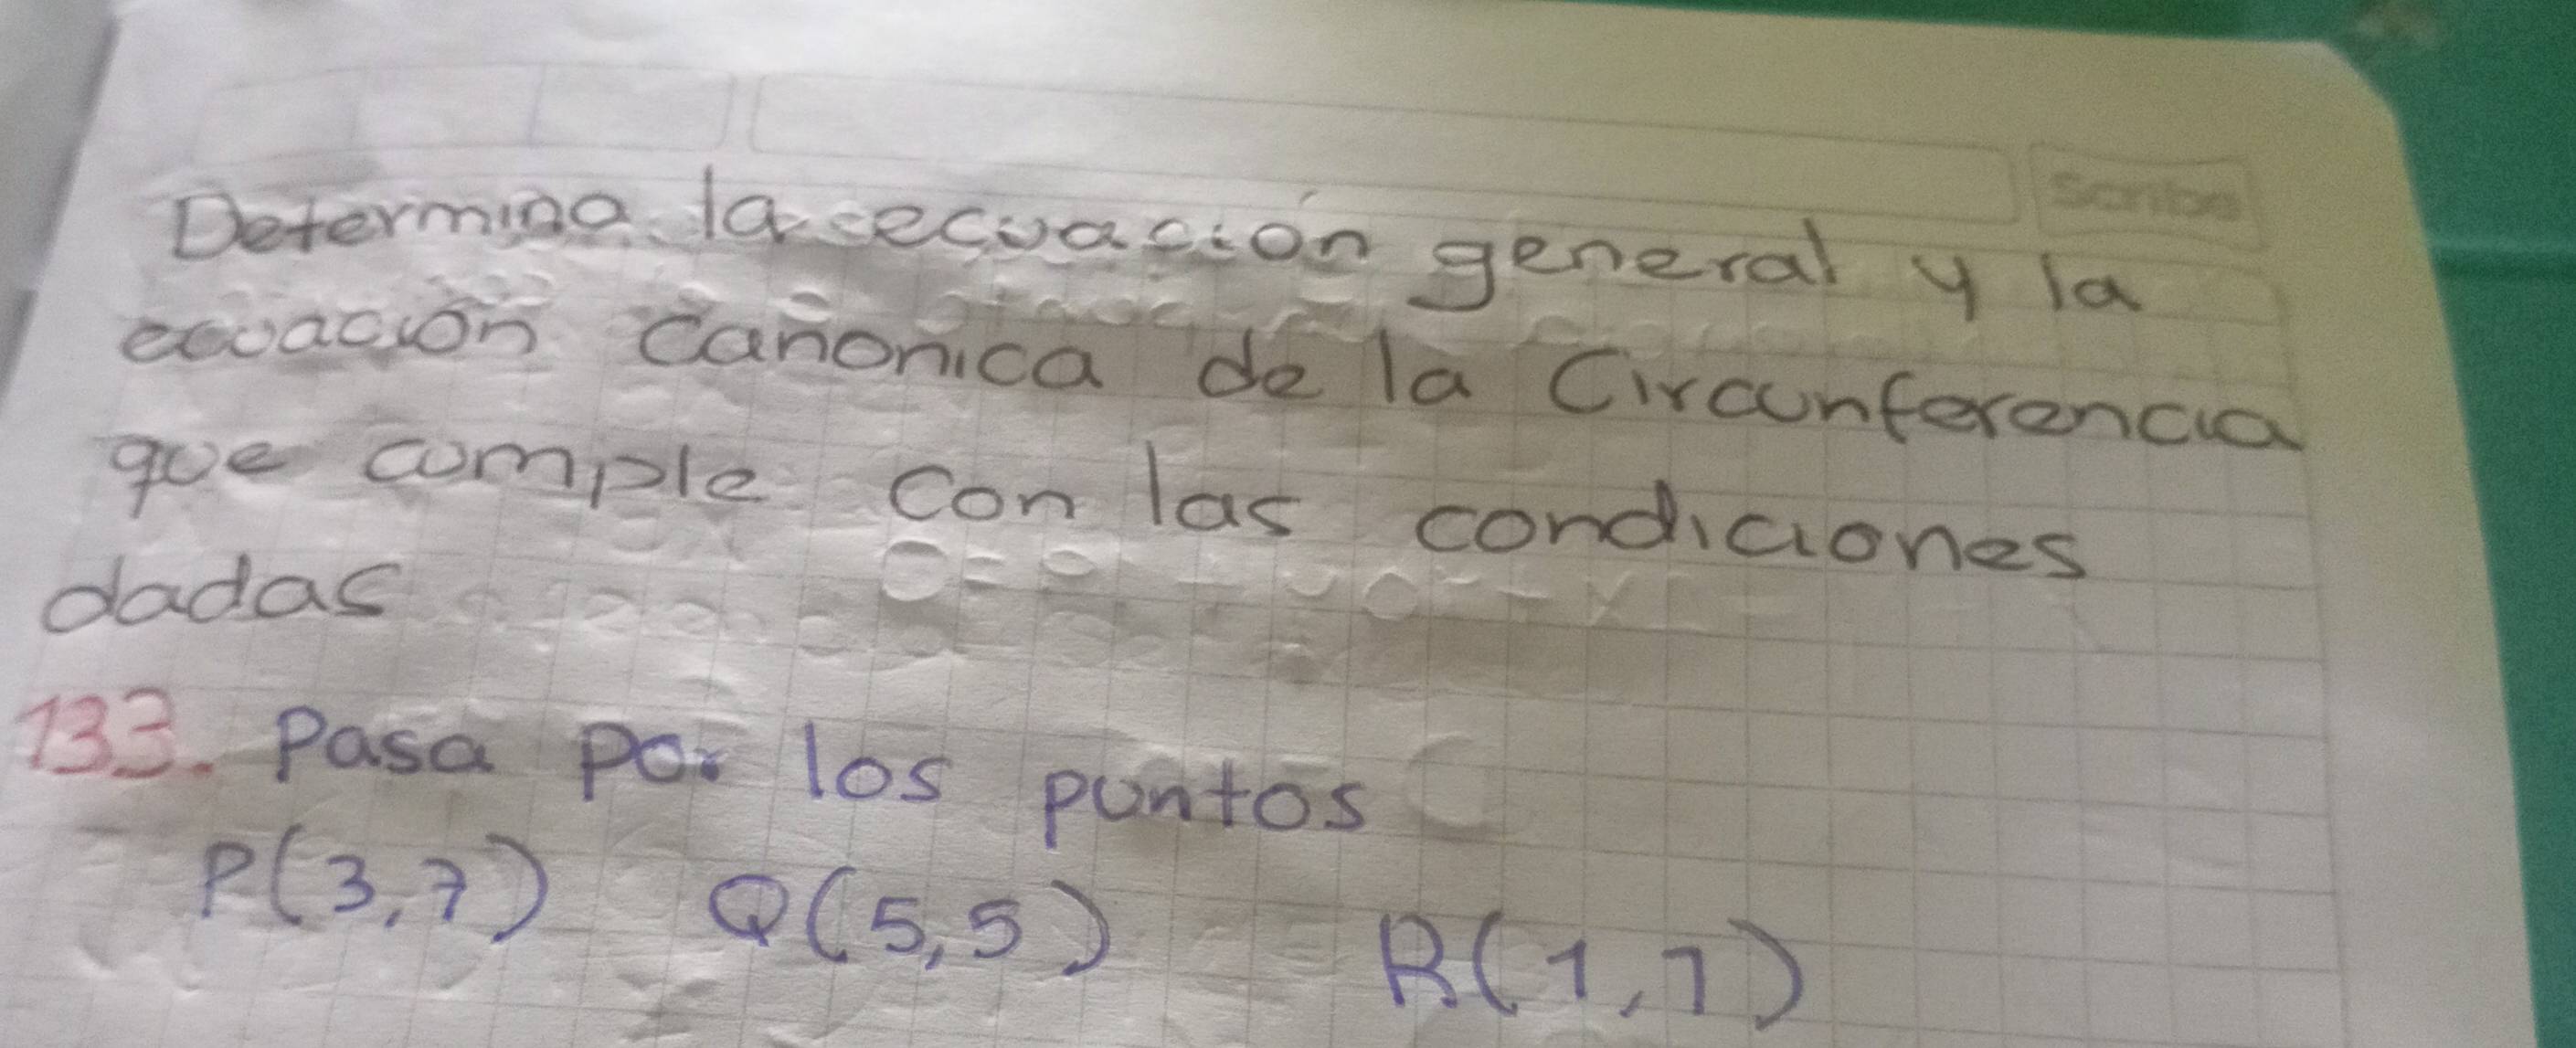 Scribe
Determina la ecuación general y la
ecuación canónica de la Circunferencia
que cumple con las condiciones
dadas
133. Pasa por los puntos
P(3,7) Q(5,5) R(1,1)